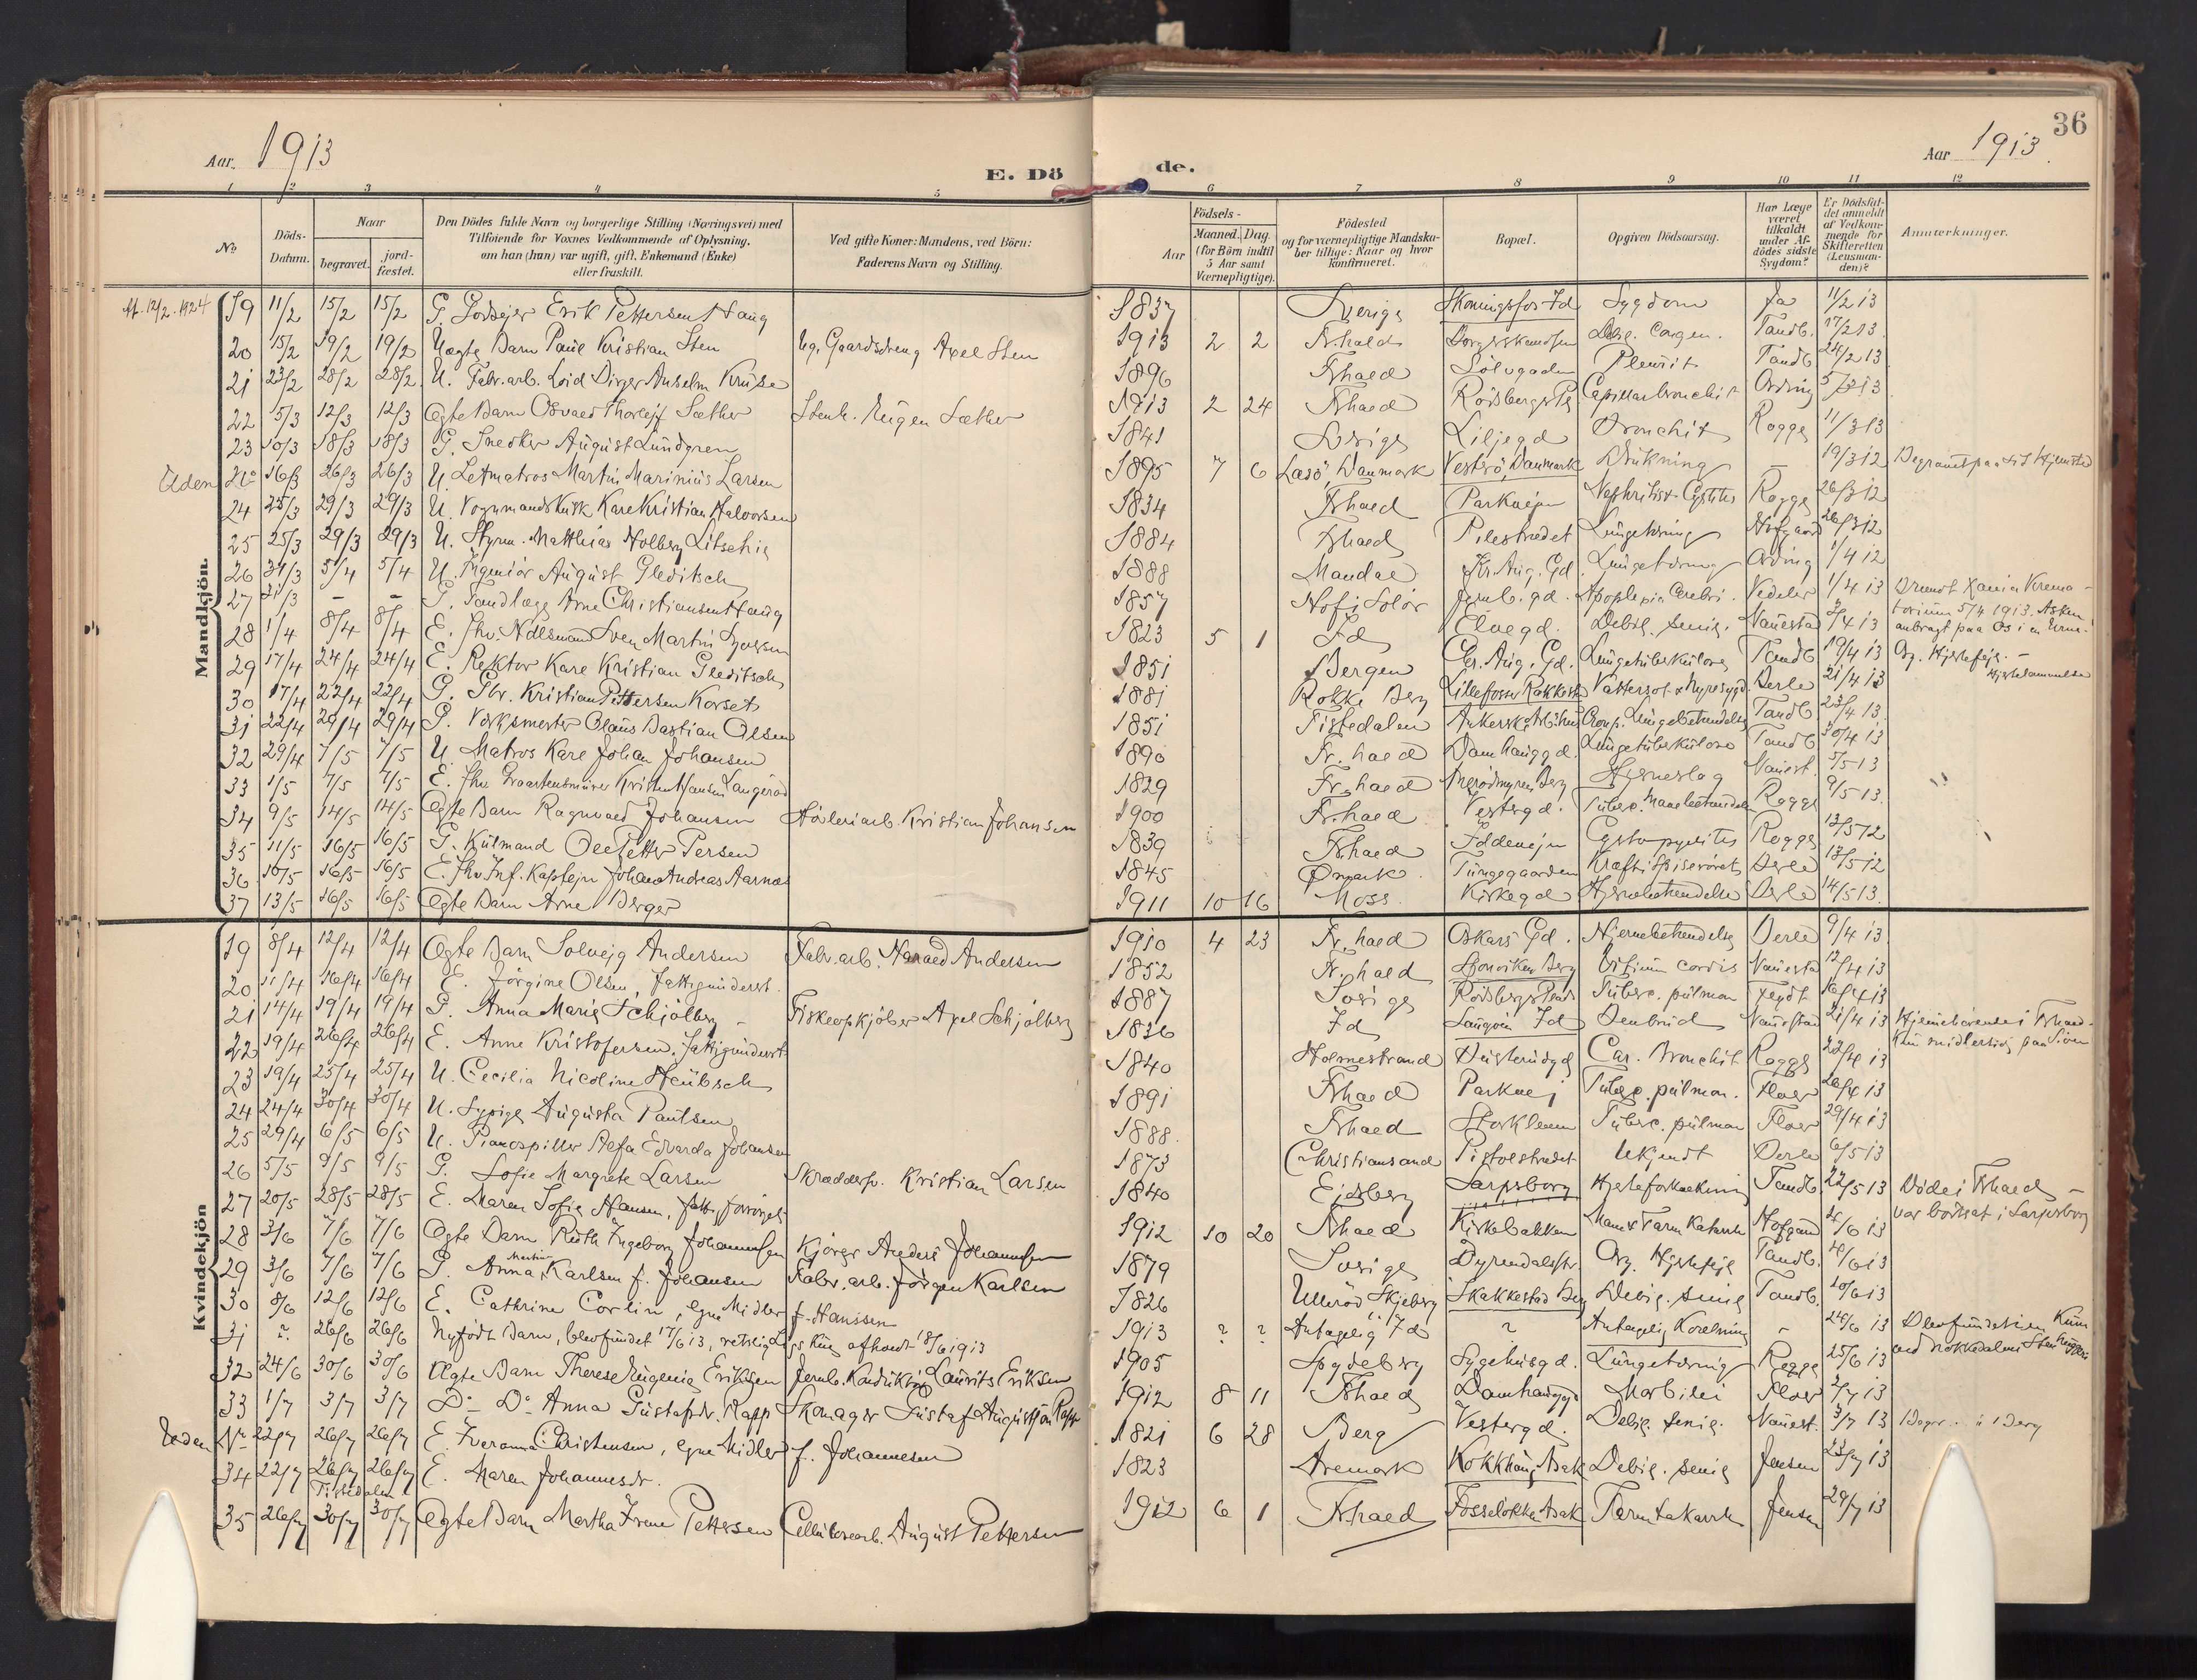 36
Aar 1913
Aar 1913
E. Dö
de.
1 2 3 4 5
6 7 8 9 10 11 12
No
Döds-Datum.
Naar
begravet.
jord-fæstet.
Den Dödes fulde Navn og borgerlige Stilling (Næringsvei) med
Tilföiende for Voxnes Vedkommende af Oplysning,
om han (hun) var ugift, gift, Enkemand (Enke)
eller fraskilt.
Ved gifte Koner: Mandens, ved Börn:
Faderens Navn og Stilling.
Födsels-
Aar
Maaned. Dag
(for Börn indtil
5 Aar samt
Værnepligtige).
Födested
og for værnepligtige Mandska-
ber tillige: Naar og hvor
konfirmeret.
Bopæl.
Opgiven Dödsaarsag.
Har Læge
været
tilkaldt
under Af-
dödes sidste
Sygdom?
Er Dödsfal-
det anmeldt
af Vedkom-
mende for
Skifteretten
(Lensman-
den)?
Anmærkninger.
Mandkjön.
19 11/2 15/2 15/2 G. Godsejer Erik Pettersen Haug 1837 Sverige Skonningsfos Id Sygdom Ja 11/2 13
20 15/2 19/2 19/2 Uægte Barn Paul Kristian Sten Ug. Gaardsdreng Axel Sten 1913 2 2 Fr.hald Debil. congen. Tandb. 17/2 13
21 23/2 28/2 28/2 U. Fabr.arb. Birger Anselm Kruse 1896 Frhald Sölvgaden Pleurit Tandb 24/2 13
22 5/3 12/3 12/3 Ægte Barn Osvald Thorleif Sæther Stenh. Eugen Sæther 1913 2 24 Frhald Capillærbronchit Ording 5/3 13
23 10/3 18/3 18/3 G. Snedker August Lundgren 1841 Sverige Liljegd Bronchit Rogge 11/3 13
Uden No 16/3 26/3 26/3 U. Letmatros Martin Marinius Larsen 1895 7 6 Læsö, Danmark Vesterö, Danmark Drukning - 19/3 12
24 25/3 29/3 29/3 U. Vognmandskusk Karl Kristian Halvorsen 1834 Frhald Parkvejen Rogge 26/3 12
25 25/3 29/3 29/3 U. Styrm. Matthias Holberg 1884 Frhald Pilestrædet Lungetæring Hofgaard 26/3 12
26 31/3 5/4 5/4 U. Ingeniör August Gleditsch 1888 Mandal Kr. Aug. Gd. Lungetæring Ording 1/4 12
27 31/3 - - G. Tandlæge Arne Christiansen Haug 1857 Hof i Solör Jernb.gd. Apoplexia Cerebri. Vedeler 1/4 13
28 1/4 8/4 8/4 E. Sven Martin 1823 5 1 Id Elvegd. Debil. senil. 2/4 13
29 17/4 24/4 24/4 E. Rektor Karl Kristian Gleditsch 1851 Bergen Chr. Aug. Gd. Lungetuberkulose Tandb 19/4 13 Org. Hjertefejl. - Hjertelammelse
30 17/4 22/4 22/4 G. Kristian Pettersen Korset 1881 Rokke Berg Vattersot & Nyresygd. Berle 21/4 13
31 22/4 29/4 29/4 G. Værksmester Olaus Bastian Olsen 1851 Tistedalen Croup. Lungebetændelse Tandb 23/4 13.
32 29/4 7/5 7/5 U. Matros Karl Johan Johansen 1890 Fr.hald Damhauggd. Lungetuberkulose Tandb 30/4 13
33 1/5 7/5 7/5 E. Kristen Hansen Langeröd 1829 Fr.hald Hjerneslag 3/5 13
34 9/5 14/5 14/5 Ægte Barn Ragnvald Johansen Hövleriarb. Kristian Johansen 1900 Fr.hald Vestergd. Rogge 9/5 13.
35 11/5 16/5 16/5 G. Kulmand Ole Petter Persen 1839 Frhald Iddevejen Cystopyelitis Rogge 13/5 12
36 10/5 16/5 16/5 E. Fhv. Inf. Kaptejn Johan Andreas Aarnes 1845 Ømark Tungegaarden Kræft i Spiserøret Berle 13/5 12
37 13/5 16/5 16/5 Ægte Barn Arne Berger 1911 10 16 Moss. Kirkegd Hjernebetændelse Berle 14/5 13.
Kvindekjön
19 8/4 12/4 12/4 Ægte Barn Solvejg Andersen Fabr.arb. Harald Andersen 1910 4 23 Fr.hald Oskars Gd. Hjernebetændelse Berle 9/4 13
20 11/4 16/4 16/4 E. Jörgine Olsen, Fattigunderst. 1852 Fr.hald Vitium cordis 12/4 13
21 14/4 19/4 19/4 G. Anna Marie Schjölberg - Fiskeopkjöber Axel Schjölberg 1887 Sverige Tuberc. pulmon 16/4 13
22 19/4 26/4 26/4 E. Anne Kristofersen, Fattigunderst. 1836 Id Benbrud 21/4 13
23 19/4 25/4 25/4 U. Cecilia Nicoline Heubsch 1840 Holmestrand Rogge 22/4 13
24 24/4 30/4 30/4 U. Sypige Augusta Paulsen 1891 Frhald Parkvej Tuberc. pulmon. Floer 26/4 13
25 29/4 6/5 6/5 U. Pianospiller Alfa Edvarda Johansen 1888. Frhald Storkleven Tuberc. pulmon Floer 29/4 13
26 5/5 9/5 9/5 G. Sofie Margrete Larsen Skræddersv. Kristian Larsen 1873 Christiansand Pistolstrædet Ukjendt Berle 6/5 13
27 20/5 28/5 28/5 E. Maren Sofie Hansen, 1840 Ejdsberg Sarpsborg Tandb. 22/5 13 Döde i Frhald - var bosat i Sarpsborg
28 3/6 7/6 7/6 Ægte Barn Ruth Ingeborg Johannesen Kjörer Anders Johannesen 1912 10 20 Frhald Kirkebakken Mave & Tarmkatarrh Hofgaard 4/6 13
29 3/6 7/6 7/6 G. Anna Karlsen f. Johansen Fabr.arb. Jörgen Karlsen 1879 Sverige Dyrendalsstr. Org. Hjertefejl Tandb. 4/6 13
30 8/6 12/6 12/6 E. Cathrine Corlin, egne Midler f. Hanssen 1826 Ulleröd Skjeberg Skakkestad Berg Debil. senil Tandb. 10/6 13
31 ? 26/6 26/6 Nyfödt Barn, blev fundet 17/6 13, 18/6 1913 1913 ? ? Antagelig Id ? Antagelig Kvælning - 24/6 13
32 24/6 30/6 30/6 Ægte Barn Therese Eugenie Eriksen Jernb. Konduktör Laurits Eriksen 1905 Spydeberg Sygehusgd. Lungetæring Rogge 25/6 13
33 1/7 3/7 3/7 Do Do Anna Gustafsdr. Rapp Skomager Gustaf Augustsson Rapp 1912 8 11 Frhald Morbilli Floer 2/7 13
Uden No 22/7 26/7 26/7 E. Christensen, egne Midler f. Johannesen 1821 6 28 Berg Vestergd. Debil. senil. 3/7 13
34 22/7 26/7 26/7 E. Maren Johannesdr. 1823 Aremark Kokkhaug Asak Debil. senil Jensen 23/7 13
Tistedalen
35 26/7 30/7 30/7 Ægte Barn Martha Irene Pettersen Cellulosearb. August Pettersen 1912 6 1 Frhald Fosselökken Asak Tarmkatarrh Jensen 29/7 13